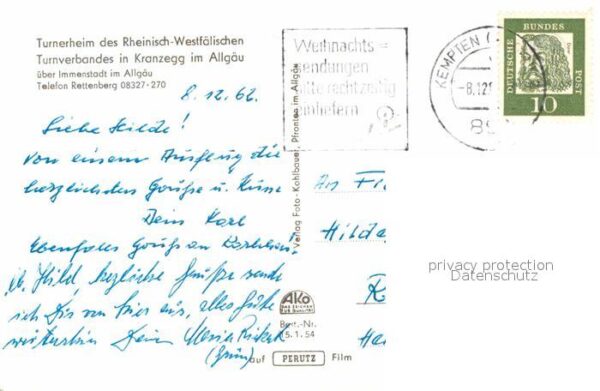 Turnerheim des Rheinisch-Westfälischen
Turnverbandes in Kranzegg im Allgäu
über Immenstadt im Allgäu
Telefon Rettenberg 08327-270
8.12.62.
Liebe Hilde!
Von einem Ausflug die
herzlichsten Grüße u. Küsse
Dein Karl
Ebenfalls Grüße an
Lb. Hild, herzliche Grüße sende
ich Dir von hier aus, alles Gute
weiterhin Deine Maria
Verlag Foto-Kohlbauer, Pfronten im Allgäu
AKO
Best.-Nr.
15.1.54
auf PERUTZ Film
Weihnachts=
sendungen
bitte rechtzeitig
einliefern
KEMPTEN (
-8.12
89
DEUTSCHE
BUNDES
POST
Dürer
10
An Fr
Hilda
privacy protection
Datenschutz